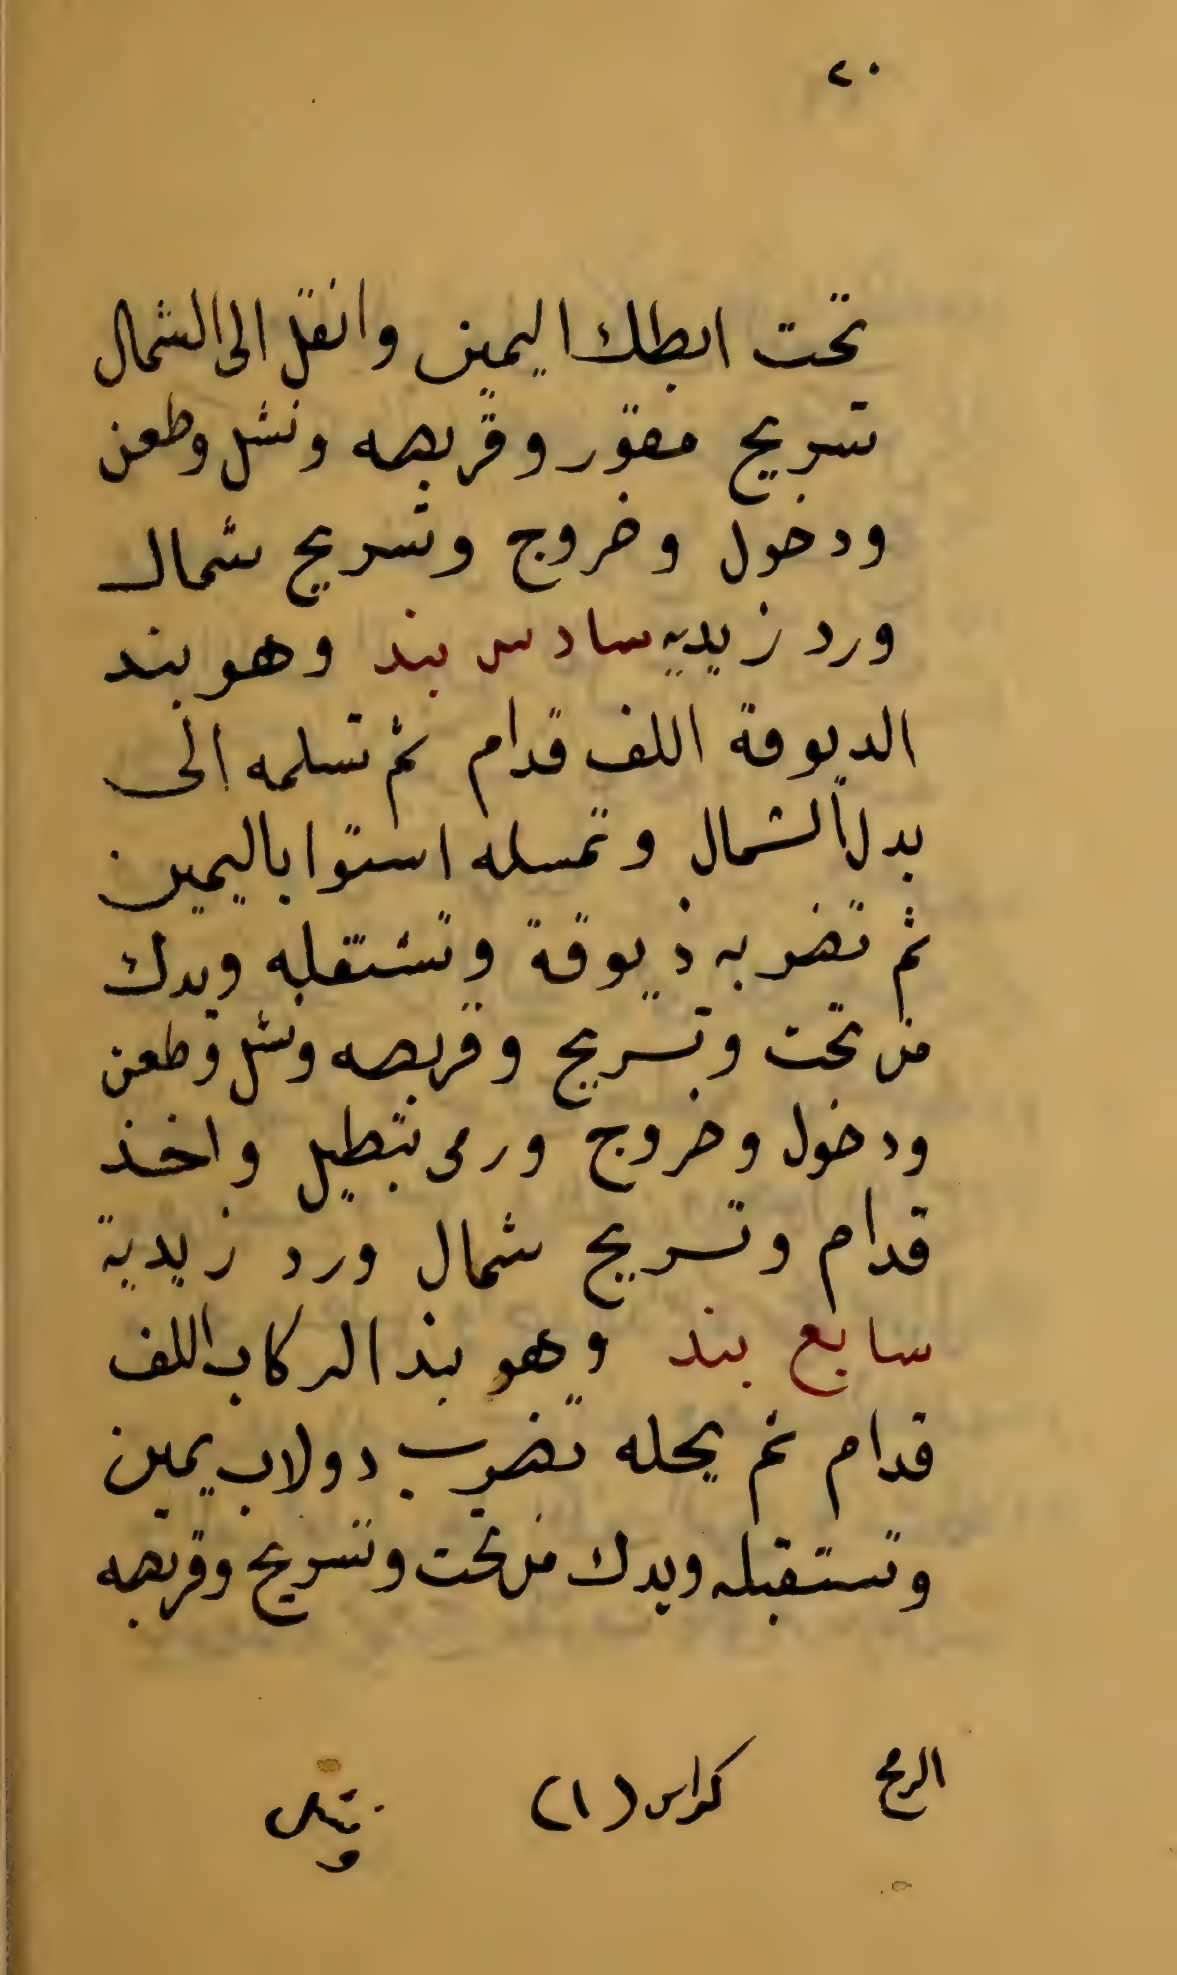 ٢٠
تحت ابطك اليمين وانقل الى الشمال
تسريح مقور وقربصه ونشل وطعن
ودخول وخروج وتسريح شمال
ورد زيديه سادس بند وهو بند
الدبوقة اللف قدام ثم تسلمه الى
يدك الشمال وتمسكه استوا باليمين
ثم تضربه ذبوقة وتستقبله ويدك
من تحت وتسريح وقربصه ونشل وطعن
ودخول وخروج ورمى تبطيل واخذ
قدام وتسريح شمال ورد زيدية
سابع بند وهو بند الركاب اللف
قدام ثم يحله تضرب دولاب يمين
وتستقبله ويدك من تحت وتسريح وقربصه
الرمح كراس (١)